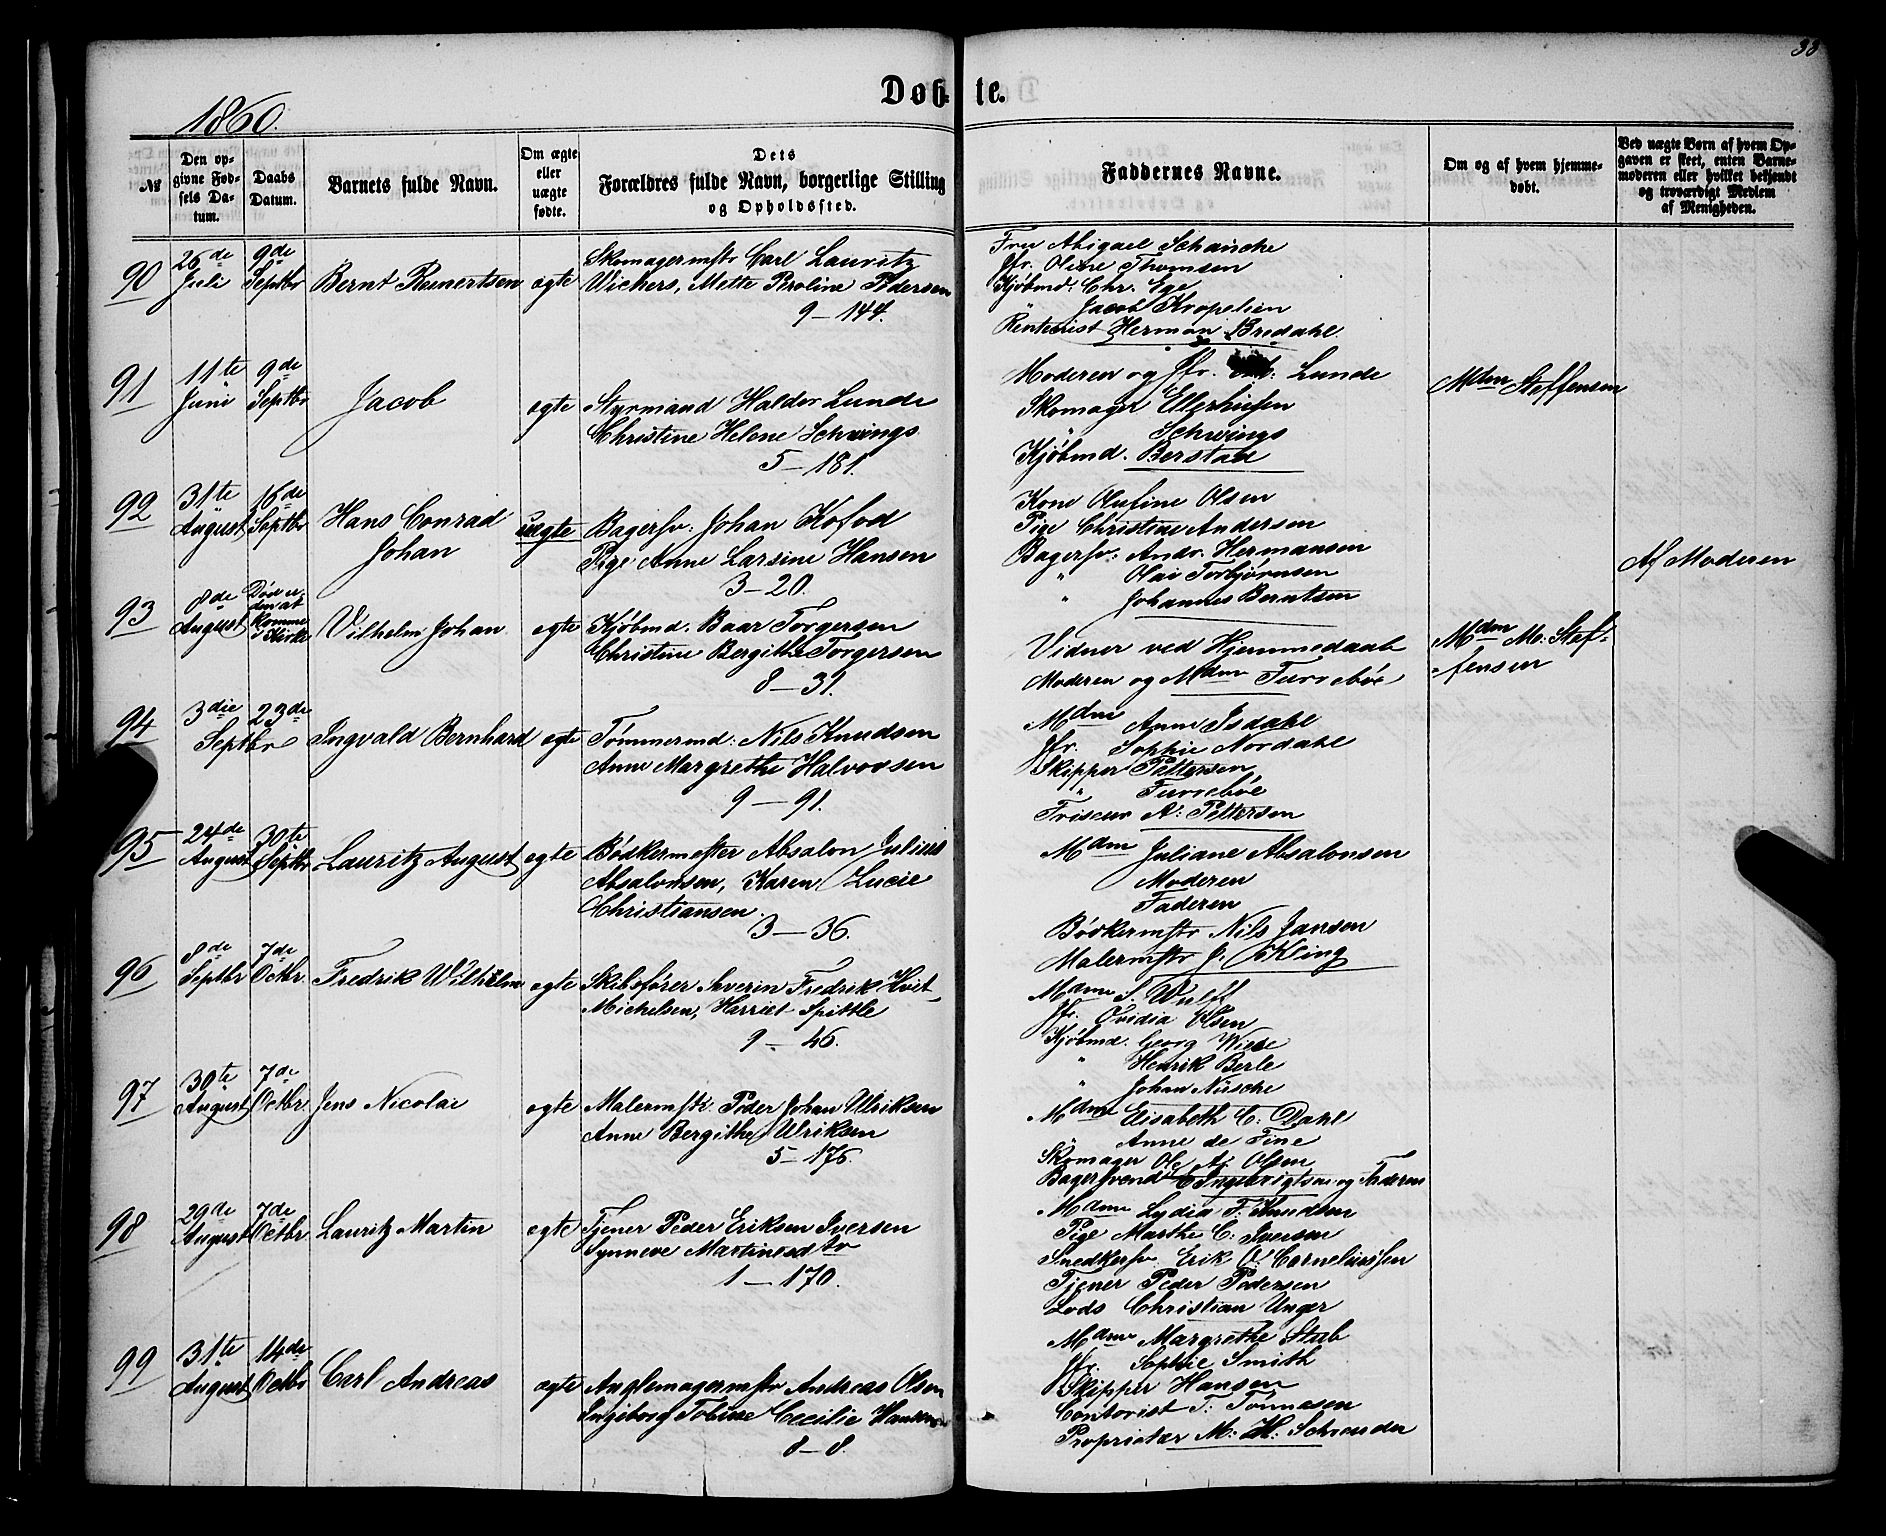 38
1860.
Døb te.
№
Den op-
givne Fød-
sels Da-
tum.
Daabs
Datum.
Barnets fulde Navn.
Om ægte
eller
uægte
fødte.
Dets
Forældres fulde Navn, borgerlige Stilling
og Opholdssted.
Faddernes Navne.
Om og af hvem hjemme-
døbt.
Ved uægte Børn af hvem Op-
gaven er skeet, enten Barne-
moderen eller hvilket bekjendt
og troværdigt Medlem
af Menigheden.
90
26de
Juli
9de
Septbr
Bernt Reinertsen
egte
Skomagermstr Carl Lauritz
Wichers, Mette Peroline Pedersen
9 - 144.
Fru Abigael Schanche
Jfr. Oline Thomsen
Kjøbmd: Chr. Ege
" Jacob Kropelien
Herman Bredahl.
91
11te
Juni
9de
Septbr
Jacob
egte
Styrmand Haldor Lunde
Christine Helene Schwings
5 - 181.
Moderen og Jfr. Lunde
Skomager Ellerhusen
" Schwings
Kjøbmd. Berstad
Mdm Steffensen
92
31te
August
16de
Septbr
Hans Conrad
Johan
uegte
Bagersv: Johan Kofod
Pige Anne Larsine Hansen
3 - 20.
Kone Olufine Olsen
Pige Christine Andersen
Bagersv: Andr. Hermansen
" Olai Torbjørnsen
" Johannes Berntsen
Af Moderen
93
8de
August
Død er
den at
komme
i Kirke
Vilhelm Johan
egte
Kjøbmd. Baar Torgersen
Christine Bergithe Torgersen
8 - 31.
Vidner ved Hjemmedaab
Moderen og Mdm Furrebøe
Mdm M: Stef-
fensen
94
3die
Septbr
23de
Ingvald Bernhard
egte
Tømmermd: Nils Knudsen
Anne Margrethe Halvorsen
9 - 91.
Mdm Anne Isdahl
Jfr. Sophie Nordahl
Skipper Pettersen
" Furrebøe
Friseur A: Pettersen
95
24de
August
30te
Septbr
Lauritz August
egte
Bødkermester Absalon Julius
Absalonsen, Karen Lucie
Christiansen.
3 - 36.
Mdm Juliane Absalonsen
Moderen
Faderen
Bødkermstr Nils Jansen
Malermstr J. Kling
96
8de
Septbr
7de
Octbr.
Fredrik Wilhelm
egte
Skibsfører Severin Fredrik Hvit-
Michelsen, Harriet Spittle
9 - 46.
Mdm S. Wulff
Jfr. Ovidia Olsen
Kjøbmd. Georg Wiese
" Henrik Berle
" Johan Nitsche
97
30te
August
7de
Octbr.
Jens Nicolai
egte
Malermstr. Peder Johan Ulriksen
Anne Bergithe Ulriksen
5 - 176.
Mdm Elisabeth C: Dahl
" Anne de Fine
Skomager Ole A: Olsen
Bagersvend E Ingebrigtsen og Faderen
98
29de
August
7de
Octbr
Lauritz Martin
egte
Tjener Peder Eriksen Iversen
Synneve Martinesdtr
1 - 170.
Mdm Lydia F. Knudsen
Pige Marthe C: Iversen
Snedkersv. Erik O: Corneliussen
Tjener Peder Pedersen
Lods Christian Unger
99
31te
August
14de
Octbr
Carl Andreas
egte
Anglemagermstr Andreas Olsen
Ingeborg Tobine Cecilie Hansen
8 - 8.
Mdm Margrethe Stub
Jfr. Sophie Smith
Skipper Hansen
Contorist T: Tønnesen
Proprietær M: H: Schrøuder